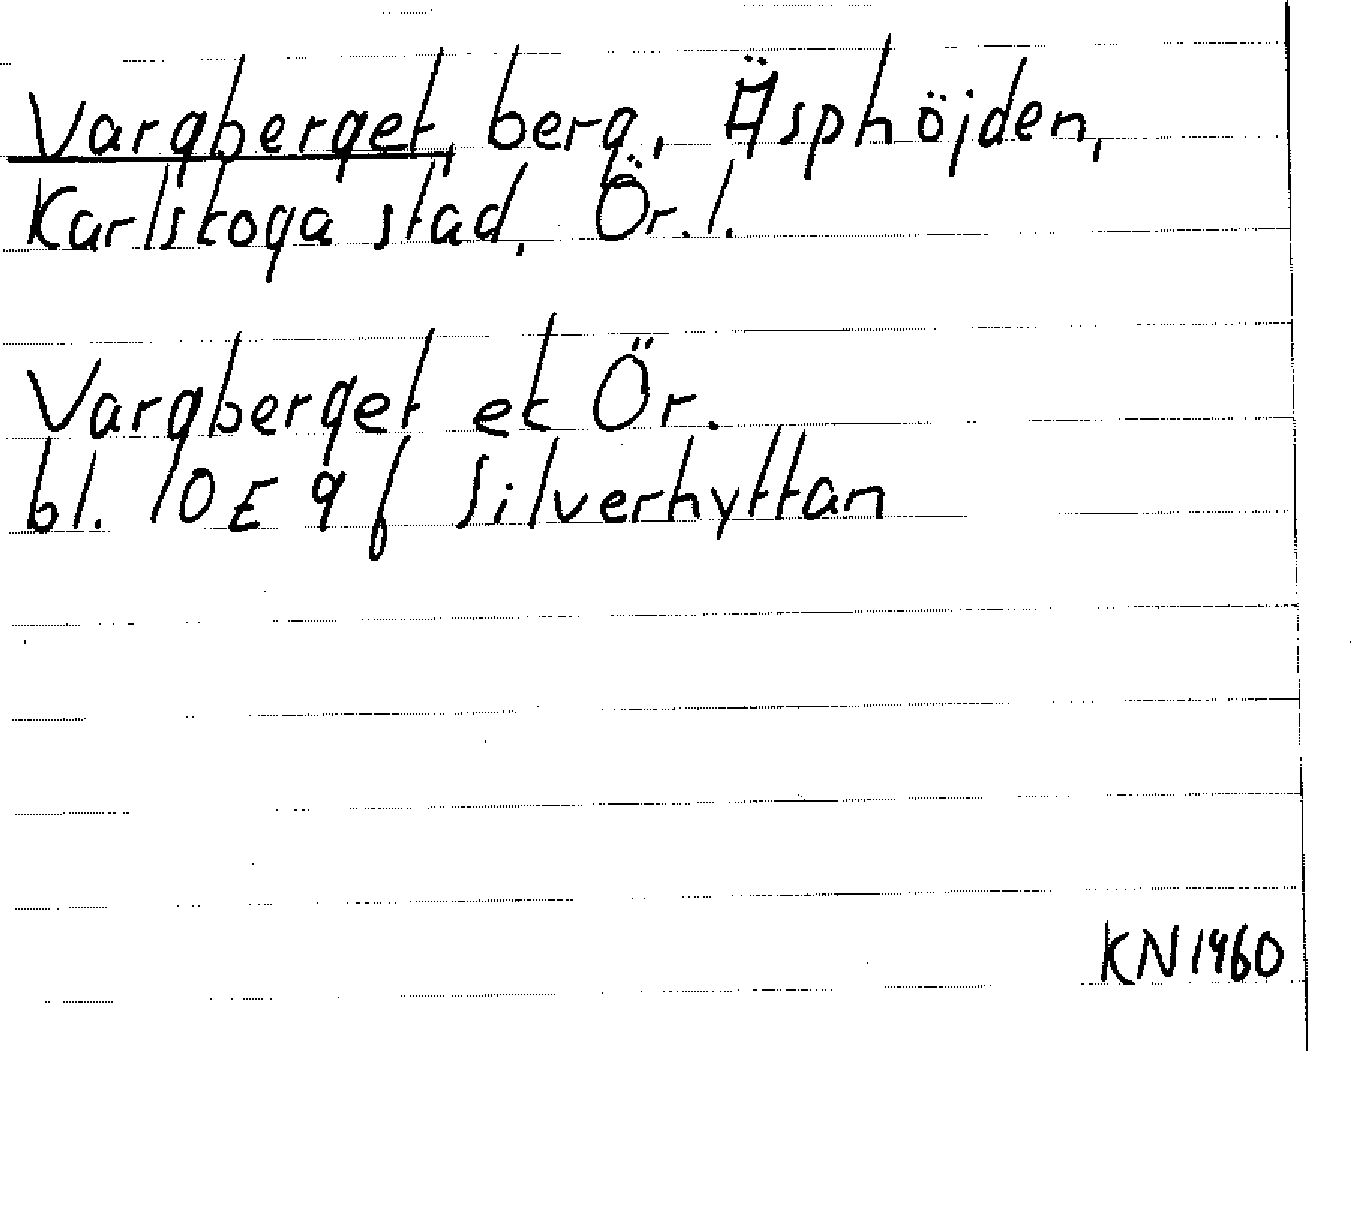 Vargberget, berg, Äsphöjden,
Karlskoga stad, Ör. l.
Vargberget et Ör.
bl. 10 E 9 f Silverhyttan
KN 1960